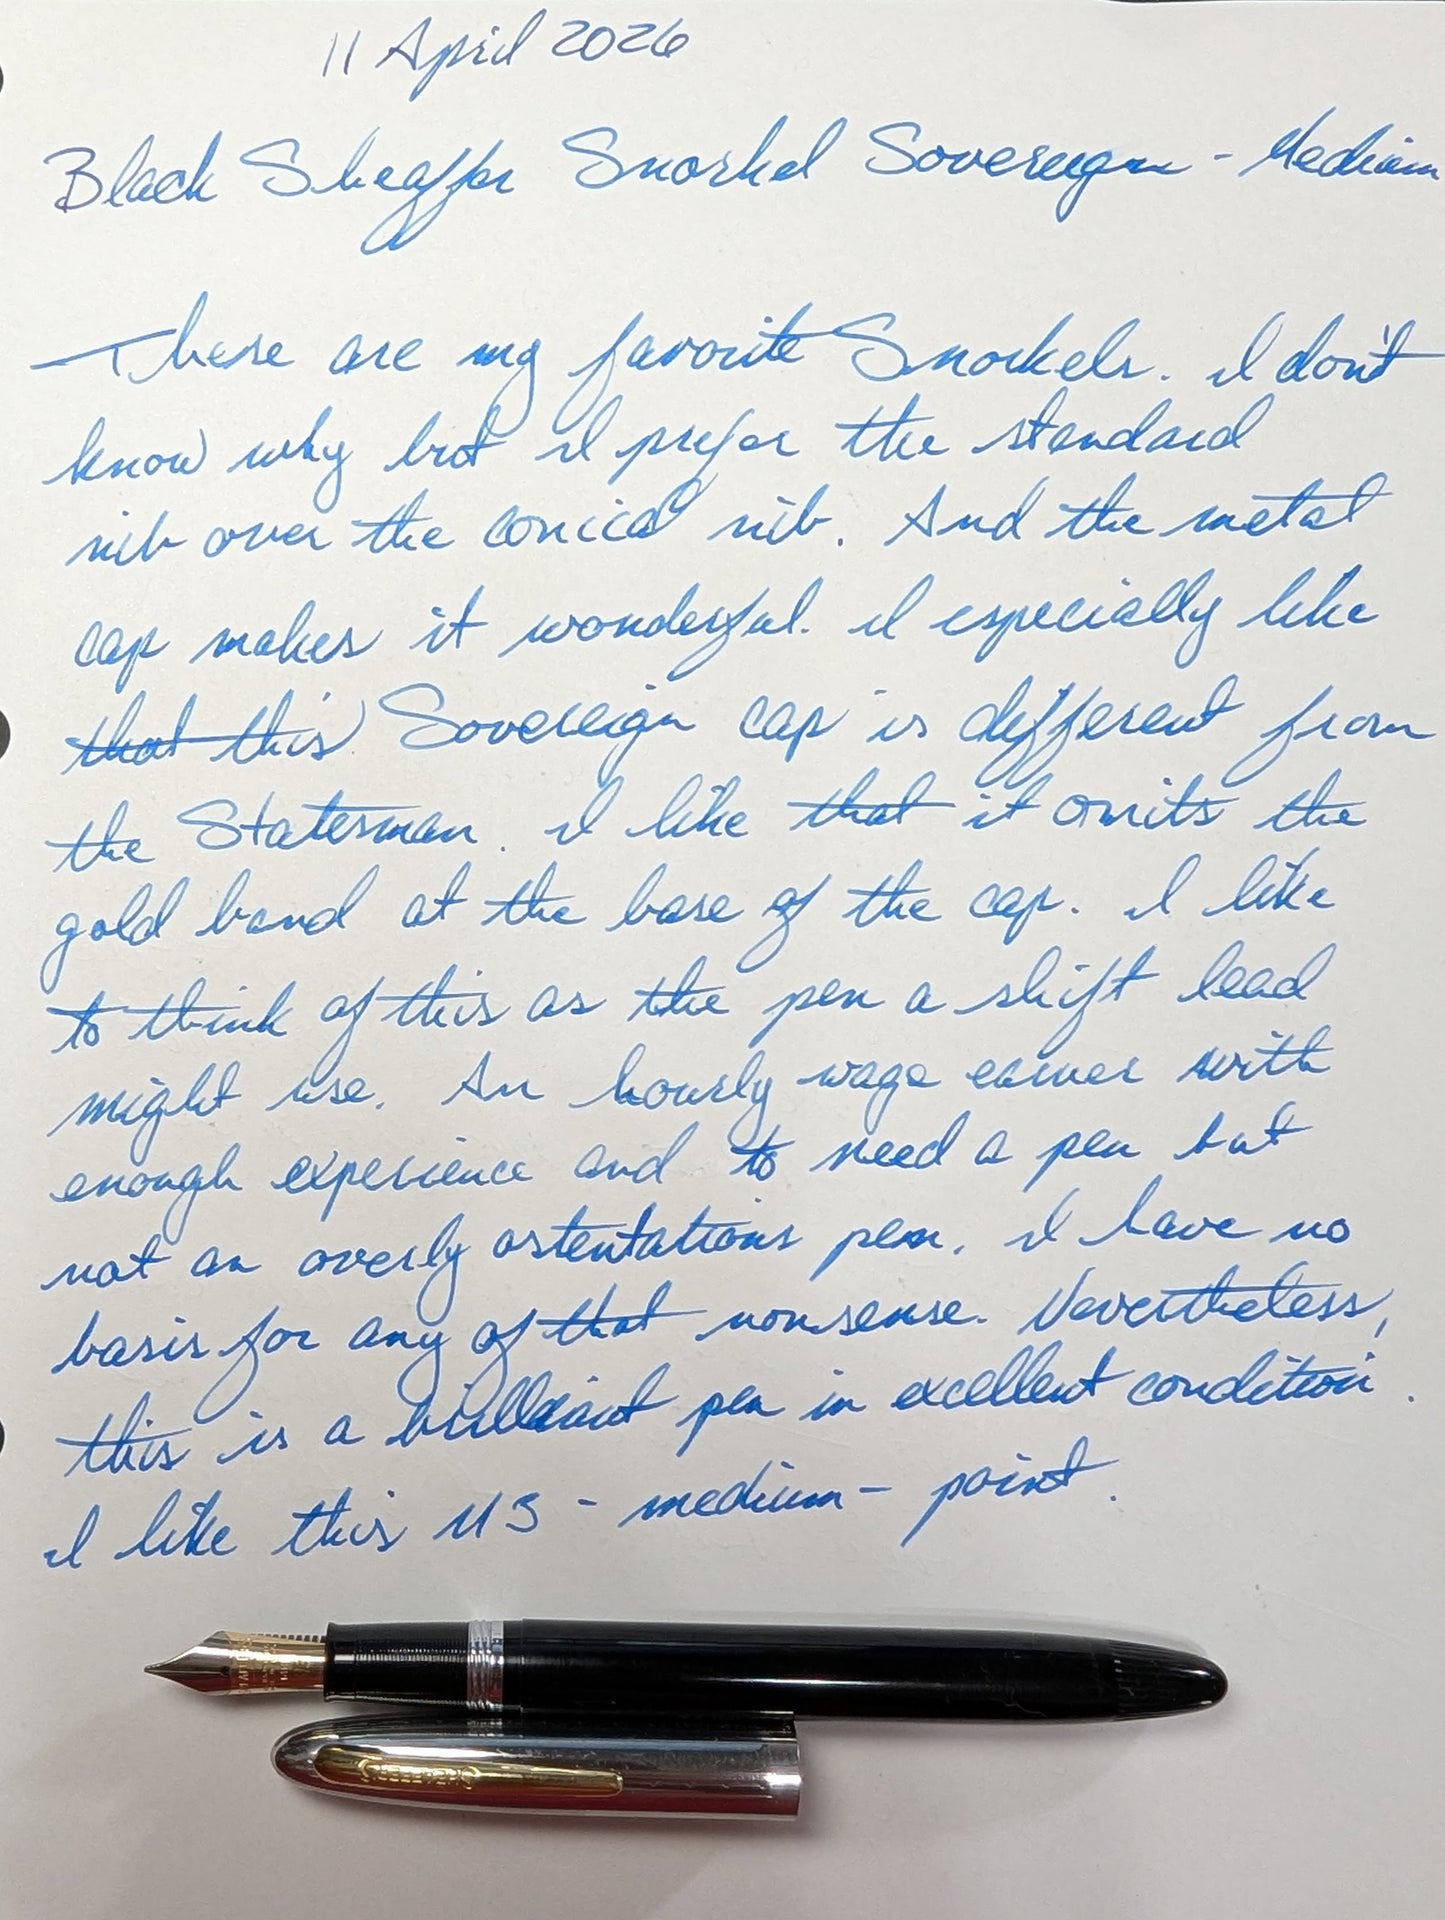 11 April 2026
Black Sheaffer Snorkel Sovereign - Medium
These are my favorite Snorkels. I don't
know why but I prefer the standard
nib over the conical nib. And the metal
cap makes it wonderful. I especially like
that this Sovereign cap is different from
the Statesman. I like that it omits the
gold band at the base of the cap. I like
to think of this as the pen a shift lead
might use. An hourly wage earner with
enough experience and to need a pen but
not an overly ostentatious pen. I have no
basis for any of that nonsense. Nevertheless,
this is a brilliant pen in excellent condition.
I like this M3 - medium - point.
SHEAFFER'S